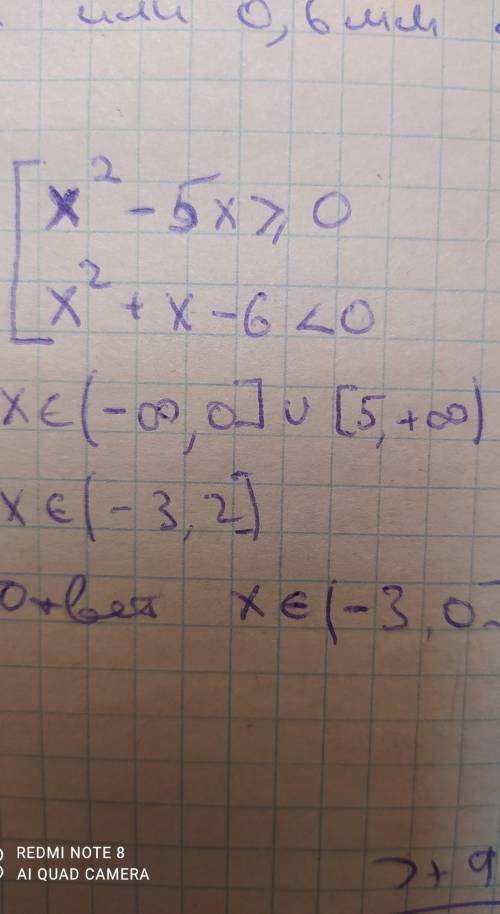 или 0,6мм
x² - 5x ≥ 0
x² + x - 6 < 0
x ∈ (-∞, 0] ∪ [5, +∞)
x ∈ (-3, 2)
Ответ x ∈ (-3, 0]
REDMI NOTE 8
AI QUAD CAMERA